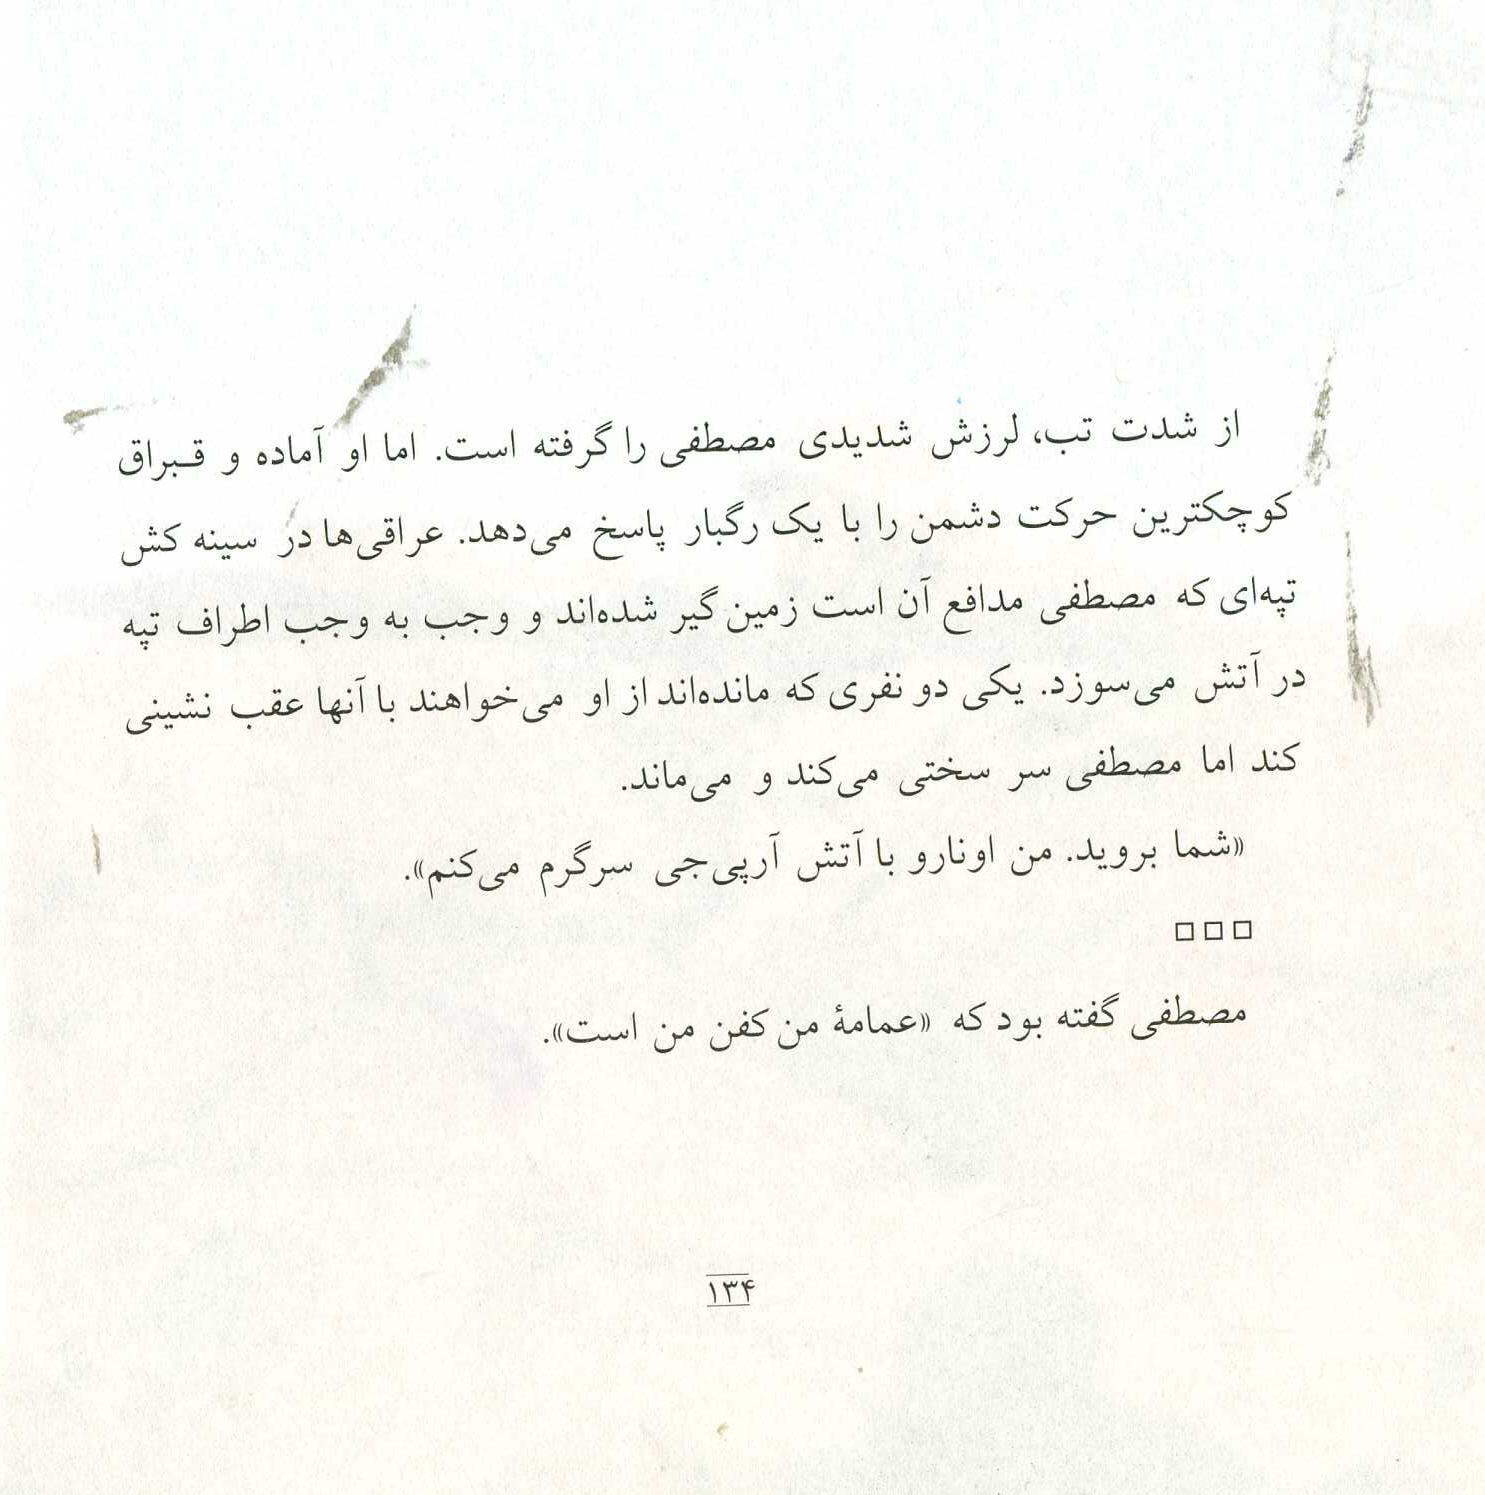 از شدت تب، لرزش شدیدی مصطفی را گرفته است. اما او آماده و قـبراق
کوچکترین حرکت دشمن را با یک رگبار پاسخ می‌دهد. عراقی‌ها در سینه کش
تپه‌ای که مصطفی مدافع آن است زمین گیر شده‌اند و وجب به وجب اطراف تپه
در آتش می‌سوزد. یکی دو نفری که مانده‌اند از او می‌خواهند با آنها عقب نشینی
کند اما مصطفی سر سختی می‌کند و می‌ماند.
«شما بروید. من اونارو با آتش آرپی‌جی سرگرم می‌کنم».
□□□
مصطفی گفته بود که «عمامهٔ من کفن من است».
۱۳۴